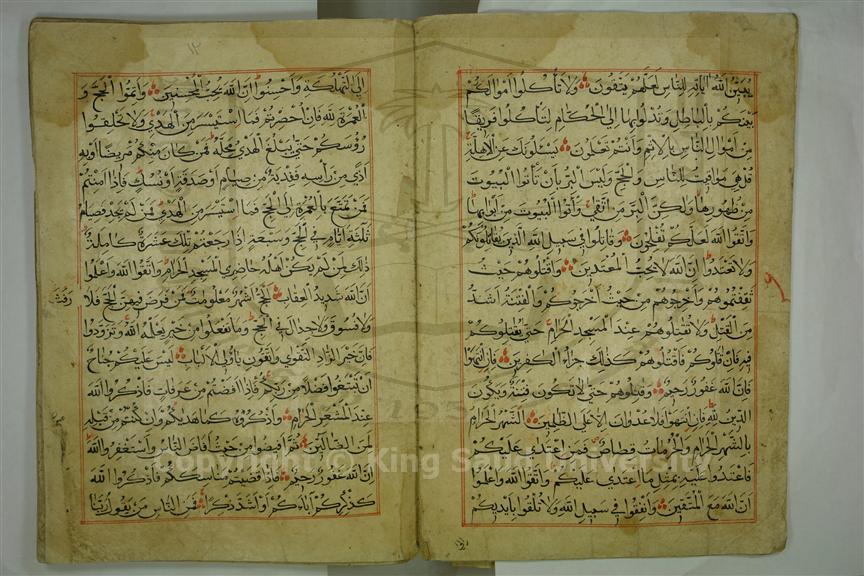 يبين الله اياته للناس لعلهم يتقون ولا تأكلوا اموالكم
بينكم بالباطل وتدلوا بها الى الحكام لتأكلوا فريقا
من اموال الناس بالاثم وانتم تعلمون يسئلونك عن الاهلة
قل هي مواقيت للناس والحج وليس البر بان تأتوا البيوت
من ظهورها ولكن البر من اتقى وأتوا البيوت من ابوابها
واتقوا الله لعلكم تفلحون وقاتلوا في سبيل الله الذين يقاتلونكم
ولا تعتدوا ان الله لا يحب المعتدين واقتلوهم حيث
ثقفتموهم واخرجوهم من حيث اخرجوكم والفتنة اشد
من القتل ولا تقتلوهم عند المسجد الحرام حتى يقتلوكم
فيه فان قتلوكم فاقتلوهم كذلك جزاء الكفرين فان انتهوا
فان الله غفور رحيم وقتلوهم حتى لا تكون فتنة ويكون
الدين لله فان انتهوا فلا عدوان الا على الظلمين الشهر الحرام
بالشهر الحرام والحرمات قصاص فمن اعتدى عليكم
فاعتدوا عليه بمثل ما اعتدى عليكم واتقوا الله واعلموا
ان الله مع المتقين وانفقوا في سبيل الله ولا تلقوا بايديكم
١٢
الى التهلكة واحسنوا ان الله يحب المحسنين واتموا الحج و
العمرة لله فان احصرتم فما استيسر من الهدي ولا تحلقوا
رؤسكم حتى يبلغ الهدي محله فمن كان منكم مريضا او به
اذى من رأسه ففدية من صيام او صدقة او نسك فاذا امنتم
فمن تمتع بالعمرة الى الحج فما استيسر من الهدي فمن لم يجد فصيام
ثلثة ايام في الحج وسبعة اذا رجعتم تلك عشرة كاملة
ذلك لمن لم يكن اهله حاضري المسجد الحرام واتقوا الله واعلموا
ان الله شديد العقاب الحج اشهر معلومت فمن فرض فيهن الحج فلا
رفث
ولا فسوق ولا جدال في الحج وما تفعلوا من خير يعلمه الله وتزودوا
فان خير الزاد التقوى واتقون يا اولي الالباب ليس عليكم جناح
ان تبتغوا فضلا من ربكم فاذا افضتم من عرفات فاذكروا الله
عند المشعر الحرام واذكروه كما هديكم وان كنتم من قبله
لمن الضالين ثم افيضوا من حيث افاض الناس واستغفروا الله
ان الله غفور رحيم فاذا قضيتم مناسككم فاذكروا الله
كذكركم اباءكم او اشد ذكرا فمن الناس من يقول ربنا
Copyright © King Saud University